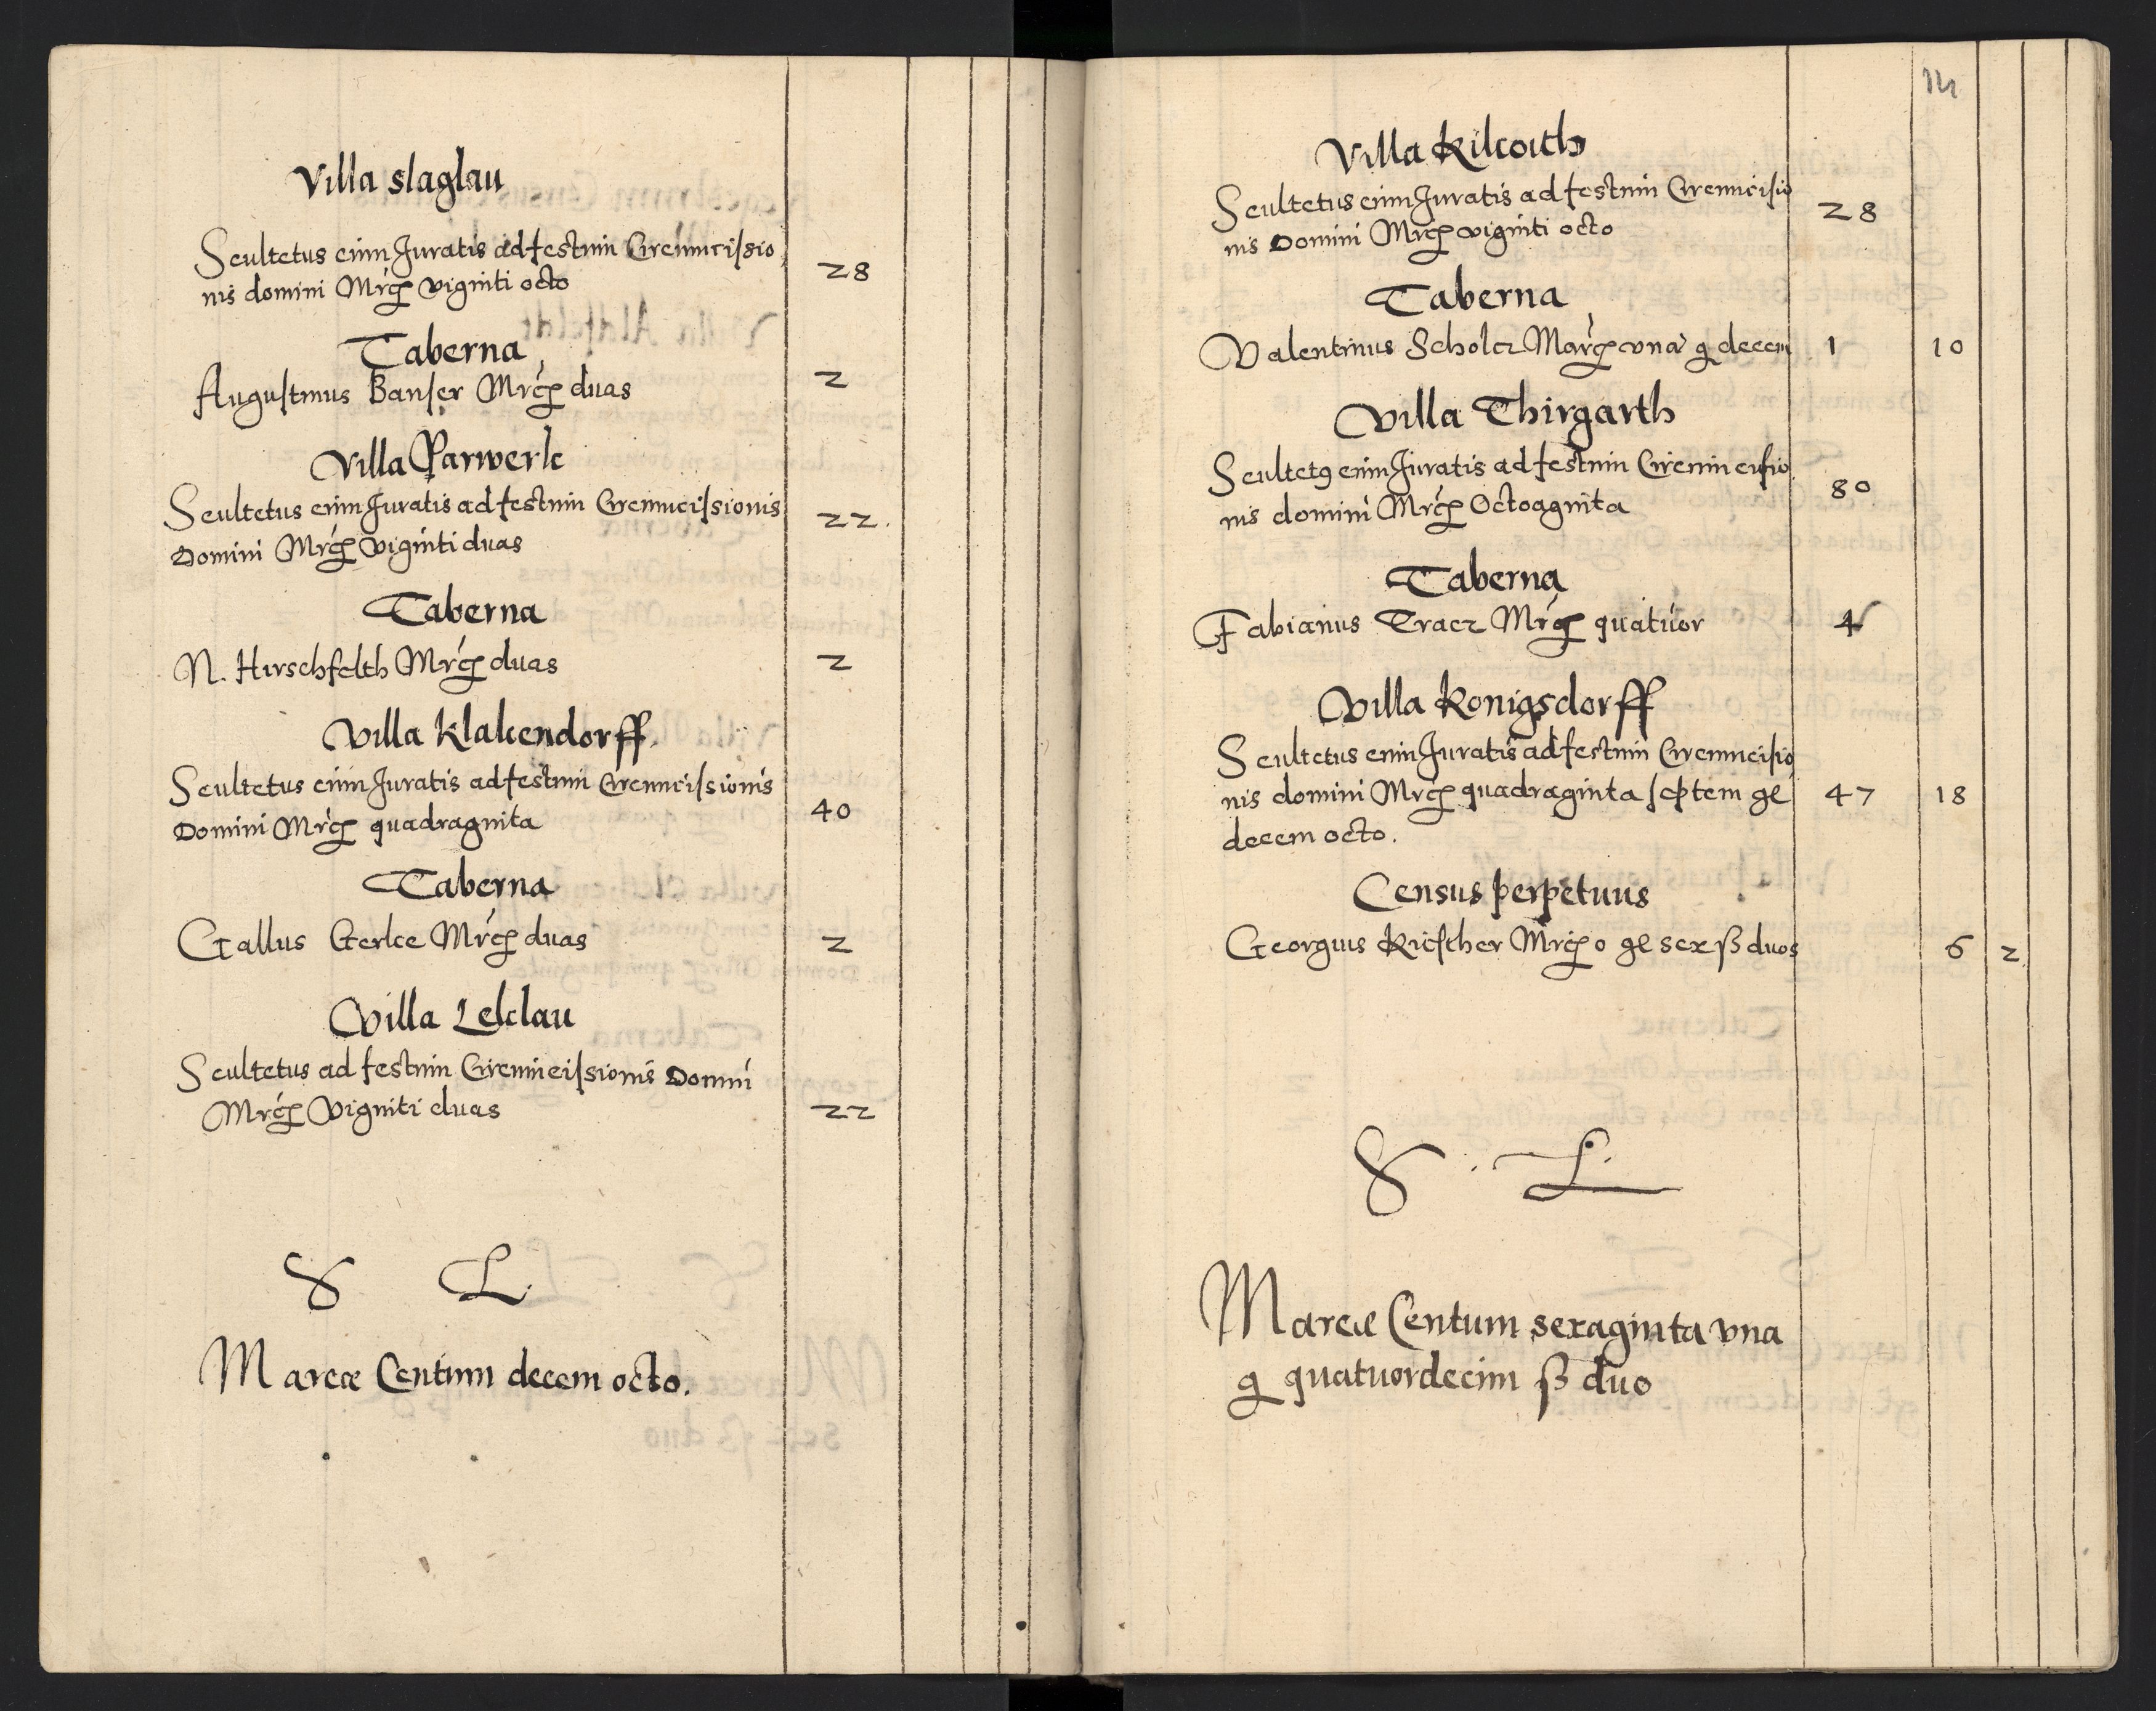 Villa slaglau
Scultetus cum Juratis ad festum Circumcissio
nis domini Mrcꝭ viginti octo 28
Taberna
Augustinus Banser Mrcꝭ duas 2
Villa Parwerk
Scultetus cum Juratis ad festum Circumcissionis
Domini Mrcꝭ viginti duas 22.
Taberna
N. Hirschfelth Mrcꝭ duas 2
Villa Klakendorff
Scultetus cum Juratis ad festum Circumcissionis
Domini Mrcꝭ quadraginta 40
Taberna
Gallus Gerke Mrcꝭ duas 2
Villa Leklau
Scultetus ad festum Circumcissionis Domini
Mrcꝭ Viginti duas 22
S L.
Marcæ Centum decem octo.
14
Villa Kilcoith
Scultetus cum Juratis ad festum Circumcisio
nis Domini Mrcꝭ viginti octo 28
Taberna
Valentinus Scholcz Marcꝭ una g decem 1 10
Villa Thirgarth
Scultetꝰ cum Juratis ad festum Circumcisio
nis domini Mrcꝭ Octoaginta 80
Taberna
Fabianus Tracz Mrcꝭ quatuor 4
Villa Konigsdorff
Scultetus cum Juratis ad festum Circumcisio
nis domini Mrcꝭ quadraginta septem gͤ 47 18
decem octo.
Census perpetuus
Georgius Kitscher Mrcꝭ 0 gͤ sex ß duos 6 2
S . L.
Marcæ Centum sexaginta una
g quatuordecim ß duo